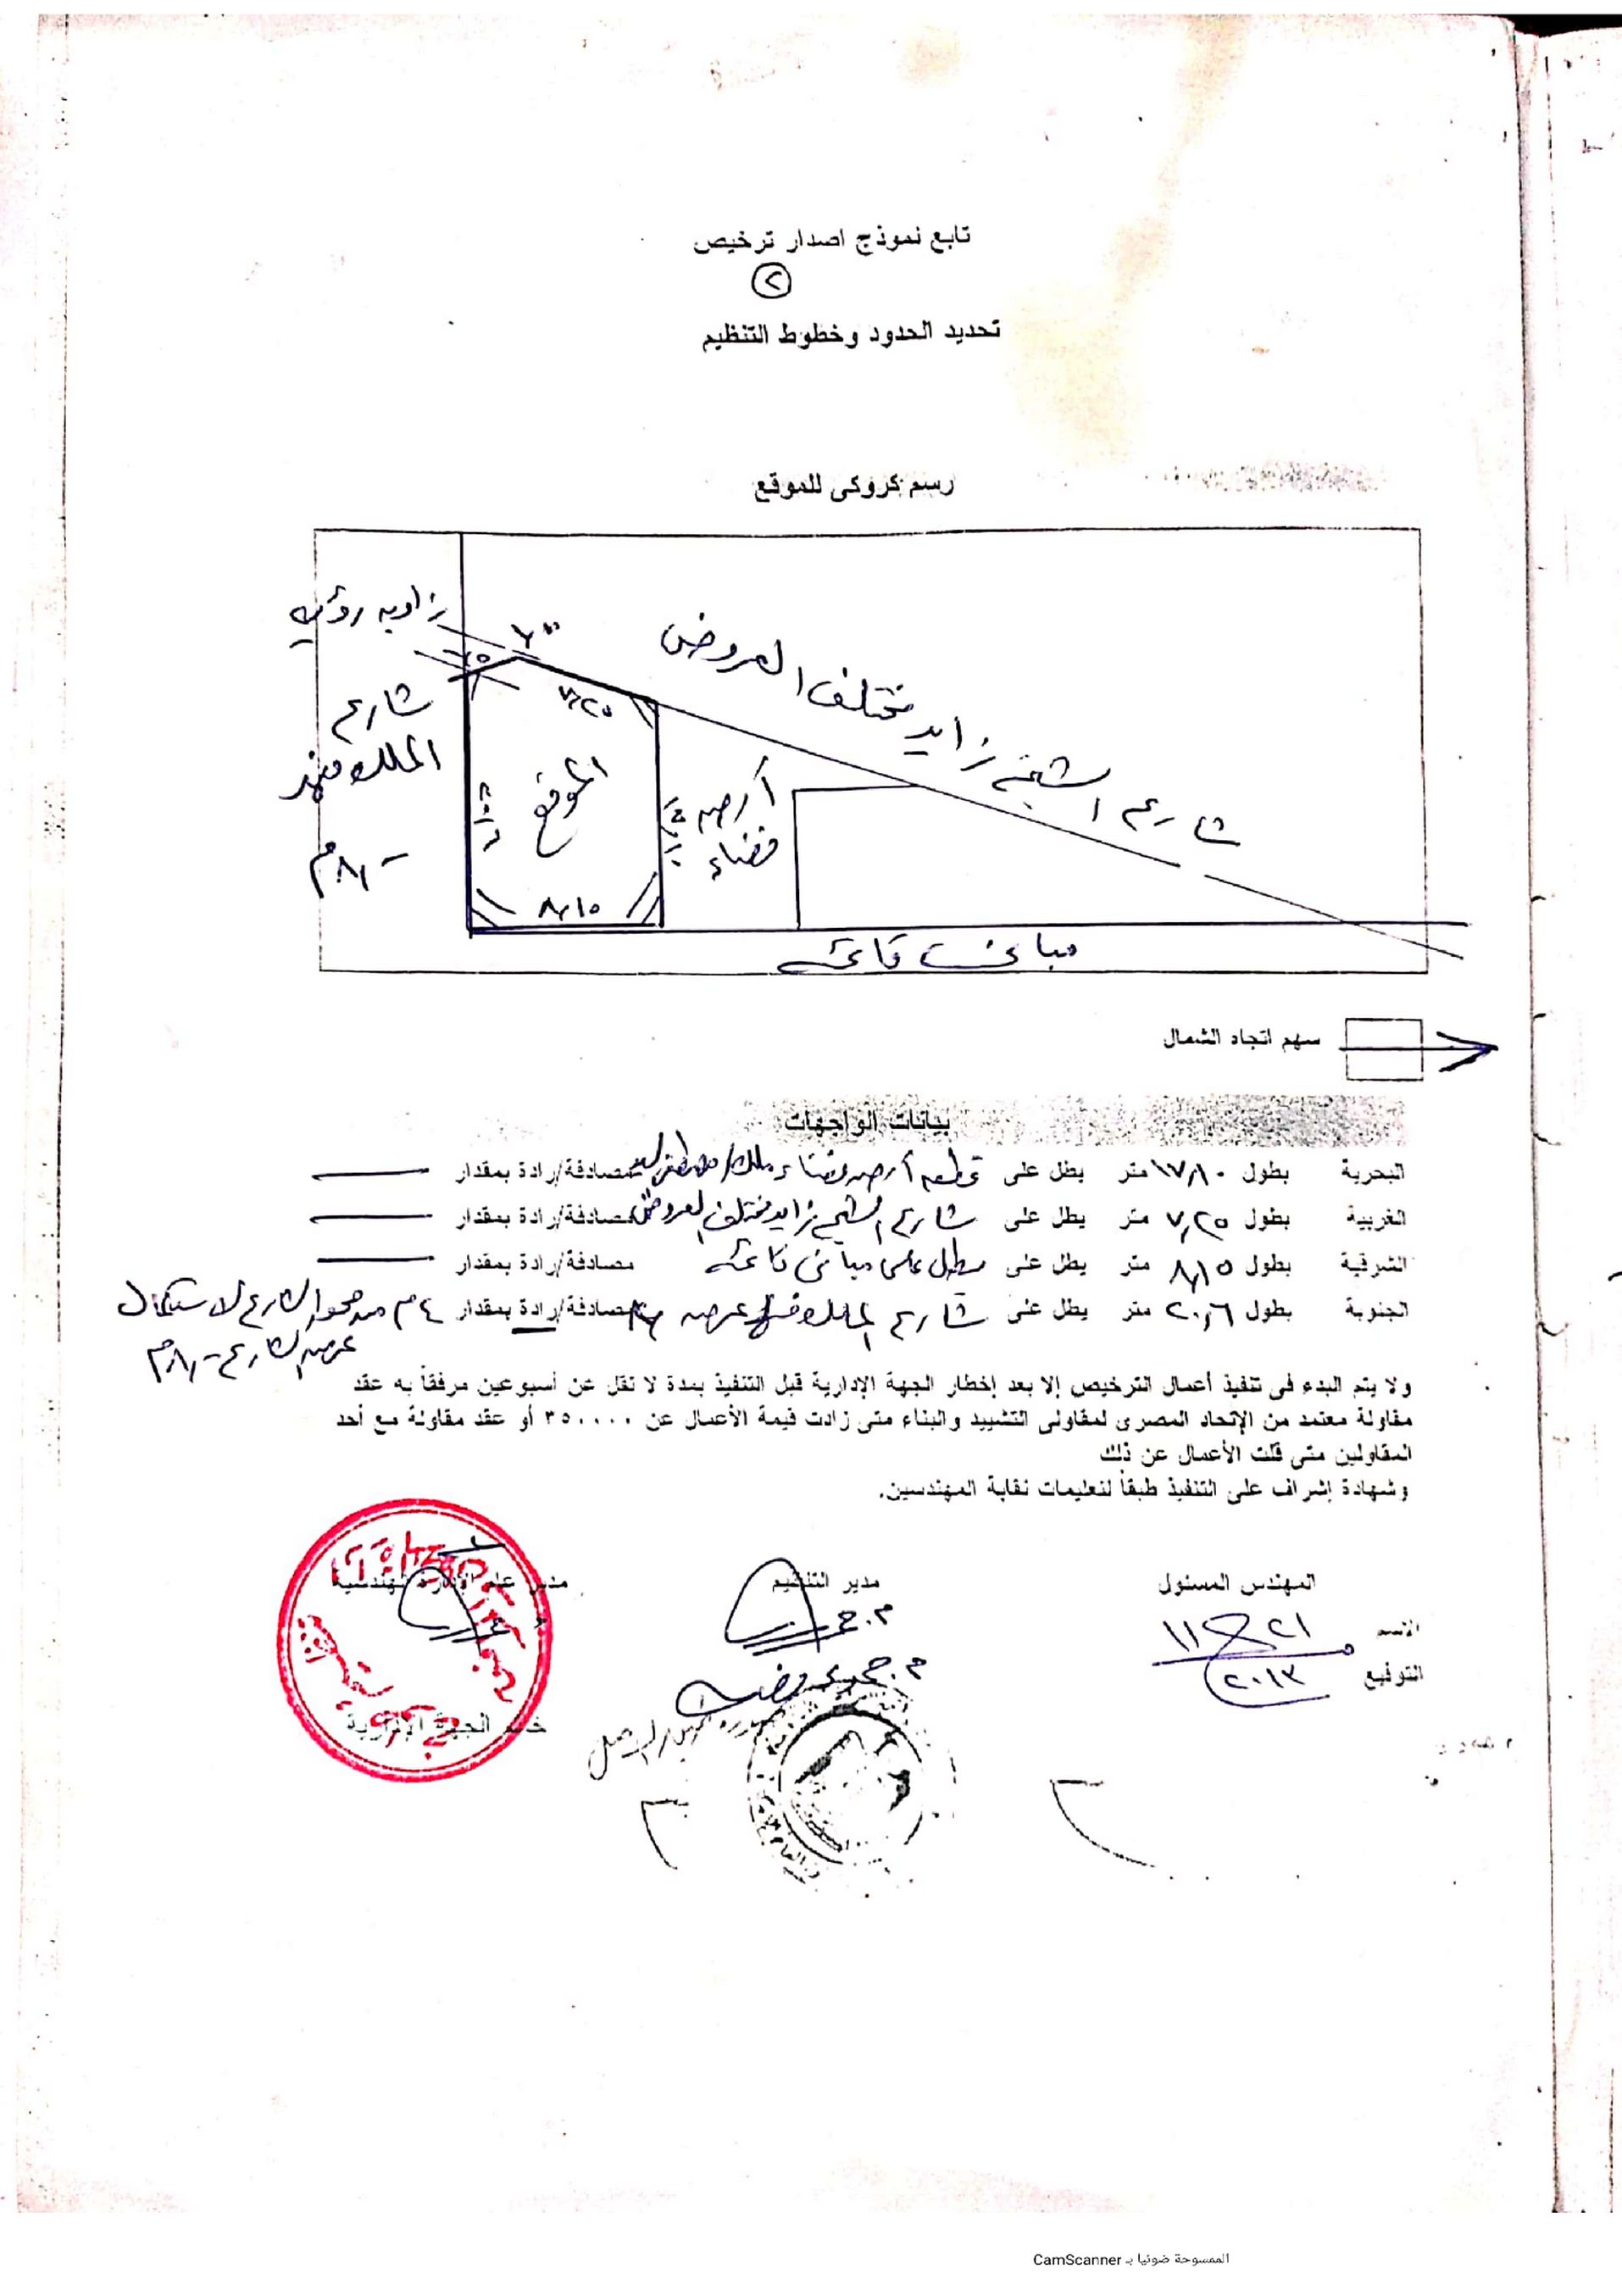 تابع نموذج اصدار ترخيص
٢
تحديد الحدود وخطوط التنظيم
رسم كروكى للموقع
زاويه رؤيه
شارع الشيخ زايد مختلف العروض
شارع
الملك فهد
٨٫٠٠م
٧٫٢٥
الموقع
أرض
فضاء
٨٫١٥
مبانى قائمه
سهم اتجاه الشمال
بيانات الواجهات
البحرية بطول ١٧٫١٠ متر يطل على قطعه أرض فضاء ملك/ مصادفة/رادة بمقدار
الغربية بطول ٧٫٢٥ متر يطل على شارع الشيخ زايد مختلف العروض مصادفة/رادة بمقدار
الشرقية بطول ٨٫١٥ متر يطل على مطل على مبانى قائمه مصادفة/رادة بمقدار
الجنوبة بطول ٢٠٫٦ متر يطل على شارع الملك فهد عرض مصادفة/رادة بمقدار ٤م من محور الشارع لاستكمال
عرض الشارع ٨٫٠٠م
ولا يتم البدء فى تنفيذ أعمال الترخيص إلا بعد إخطار الجهة الإدارية قبل التنفيذ بمدة لا تقل عن أسبوعين مرفقاً به عقد
مقاولة معتمد من الإتحاد المصرى لمقاولى التشييد والبناء متى زادت قيمة الأعمال عن ٣٥٠٠٠٠ أو عقد مقاولة مع أحد
المقاولين متى قلت الأعمال عن ذلك
وشهادة إشراف على التنفيذ طبقاً لتعليمات نقابة المهندسين.
المهندس المسئول مدير التنظيم مدير عام الإدارة الهندسية
الاسم
التوقيع
٢٠١٣
خاتم الجهة الإدارية
الممسوحة ضوئيا بـ CamScanner